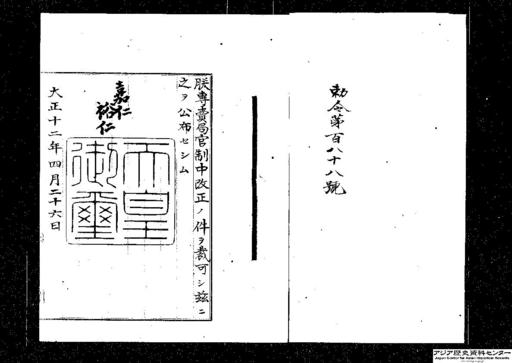 勅令第百八十八號
朕專賣局官制中改正ノ件ヲ裁可シ茲ニ
之ヲ公布セシム
嘉仁
裕仁
天皇
御璽
大正十二年四月二十六日
アジア歴史資料センター
Japan Center for Asian Historical Records